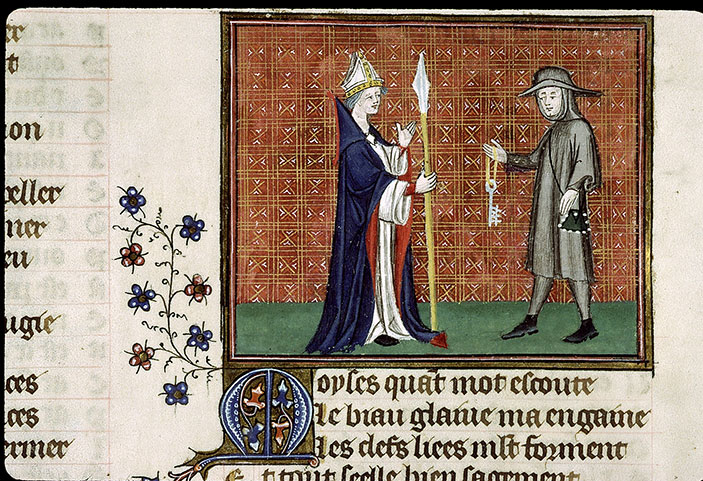 er
t
on
eller
mer
eu
ugie
ces
ces
ermer
Moyses quāt mot escoute
Le biau glaiue ma engaine
Les clefs liees mlt forment
Et tout seelle bien sagement